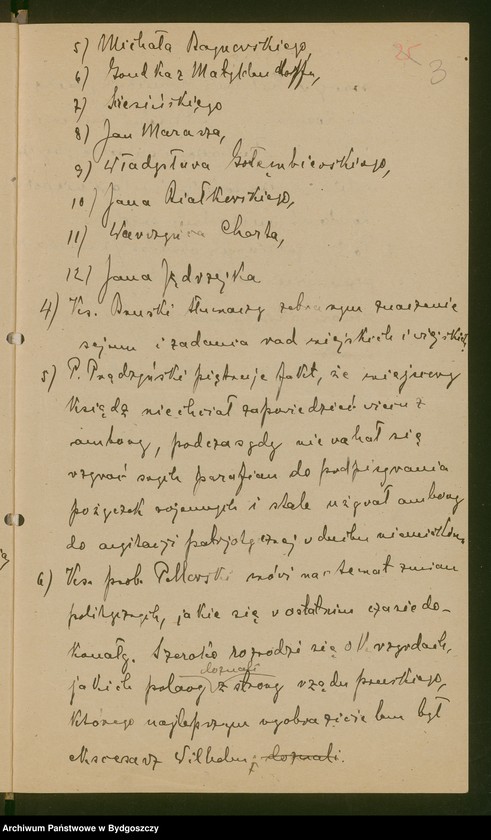 25
3
5) Michała
6)
7)
8) Jan Marasza,
9) Gołębiewskiego,
10) Jana Białkowskiego,
11) Wawrzyńca Charta,
12) Jana Jędrzejka
4) Ks. Bruski tłumaczy zebranym znaczenie
sejmu i zadania rad miejskich i wiejskich
5) P. Prądzyński piętnuje fakt, że miejscowy
Ksiądz nie chciał zapowiedzieć wiecu z
ambony, podczas gdy nie wahał się
wzywać swych parafian do podpisywania
pożyczek wojennych i stale używał ambony
do agitacji patrjotycznej w duchu niemieckim.
6) Ks. prob. mówi na temat zmian
politycznych, jakie się w ostatnim czasie do-
konały. Szeroko rozwodzi się o krzywdach,
doznali
jakich polacy z strony rządu pruskiego,
którego najlepszym wyobrazicielem był
ekscesarz Wilhelm doznali.
Archiwum Państwowe w Bydgoszczy